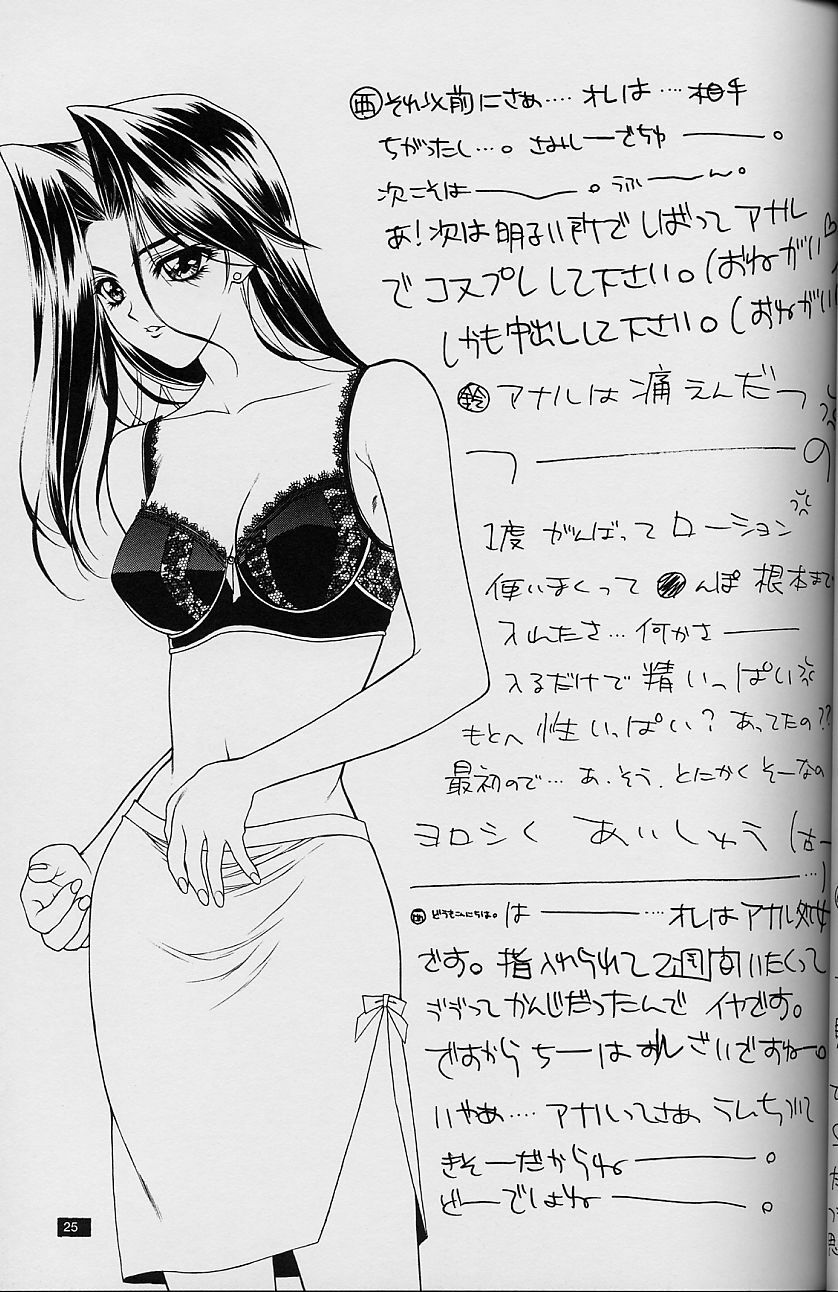 西 それ以前にさぁ…. オレは…. 相手
ちがったし…。さみしーでちゅ――。
次こそは――。うふーん。
あ!次は明るい所でしばってアナル
でコスプレして下さい。(おねがい♡
しかも中出しして下さい。(おねがい
鈴 アナルは痛えんだっ
つ――の
1度がんばってローション
使いまくって●んぽ根本まで
入れたさ…何かさ――
入るだけで精いっぱい
もとへ性いっぱい?あってたの??
最初ので…あ.そう.とにかくそーなの
ヨロシく あいしゅう
西 どうもこんにちは。は――….オレはアナル処女
です。指入れられて2週間いたくって
ってかんじだったんでイヤです。
ですから ちーは ずれ ざいですねー。
いやぁ…. アナルってさぁ うんちついて
きそーだからね――。
どーでしょね――。
25